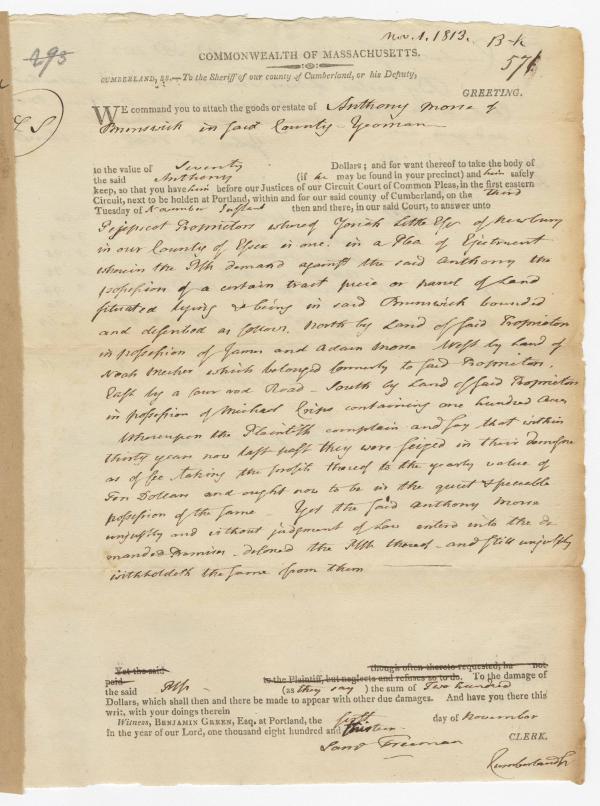 Nov. 1. 1813.
293
57
COMMONWEALTH OF MASSACHUSETTS.
CUMBERLAND, SS.—To the Sheriff of our county of Cumberland, or his Deputy,
GREETING.
WE command you to attach the goods or estate of Anthony Morse of
Brunswick in said County - Yeoman
to the value of Seventy Dollars; and for want thereof to take the body of
the said Anthony (if he may be found in your precinct) and him safely
keep, so that you have him before our Justices of our Circuit Court of Common Pleas, in the first eastern
Circuit, next to be holden at Portland, within and for our said county of Cumberland, on the third
Tuesday of November Instant then and there, in our said Court, to answer unto
Pejepscot Proprietors whereof Josiah Little Esqr of Newbury
in our County of Essex is one: in a Plea of Ejectment
wherein the Plffs demand against the said Anthony the
possession of a certain tract piece or parcel of Land
situated lying & being in said Brunswick bounded
and described as follows. North by Land of said Proprietors
in possession of James and Adam Morse West by Land of
Noah which belonged formerly to said Proprietors,
East by a four rod Road - South by Land of said Proprietors
in possession of Michael containing one hundred acres
Whereupon the Plaintiffs complain and say that within
thirty years now last past they were seized in their demesne
as of fee taking the profits thereof to the yearly value of
Ten Dollars and ought now to be in the quiet & peaceable
possession of the same - Yet the said Anthony Morse
unjustly and without judgment of Law entered into the de
manded Premises - deforced the Plffs thereof - and still unjustly
withholdeth the same from them
Yet the said though often thereto requested, ha not
paid to the Plaintiff, but neglects and refuses so to do. To the damage of
the said Plffs (as they say) the sum of Two hundred
Dollars, which shall then and there be made to appear with other due damages. And have you there this
writ, with your doings therein
Witness, BENJAMIN GREEN, Esq, at Portland, the sixth day of November
In the year of our Lord, one thousand eight hundred and thirteen.
Saml Freeman CLERK.